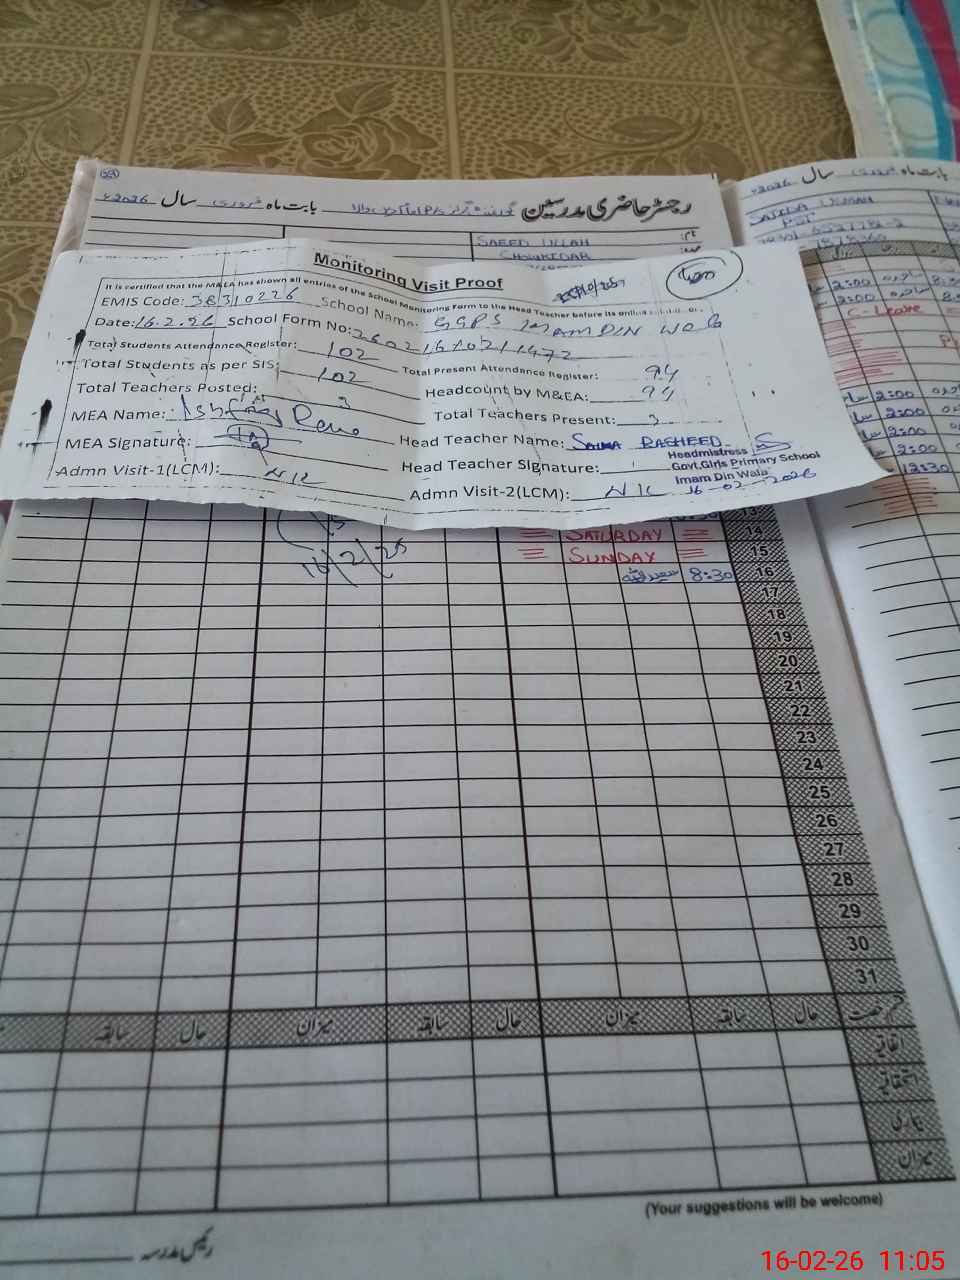 رجسٹر حاضری مدرسین
بابت ماہ فروری سال 2026ء
نام:
SAEED ULLAH
CHOWKIDAR
بابت ماہ فروری سال 2026ء
SAJIDA USMAN
PST
Monitoring Visit Proof
It is certified that the M&EA has shown all entries of the School Monitoring Form to the Head Teacher before its online
EMIS Code: 38310226 School Name: GGPS IMAM DIN WALA
Date: 16.2.26 School Form No:
Total Students Attendance Register: 102 Total Present Attendance Register: 94
Total Students as per SIS: 102 Headcount by M&EA: 94
Total Teachers Posted: 3 Total Teachers Present: 3
MEA Name: Head Teacher Name: SALMA RASHEED
MEA Signature: Head Teacher Signature:
Headmistress
Govt.Girls Primary School
Imam Din Wala
Admn Visit-1(LCM): NIL Admn Visit-2(LCM): NIL 16-02-2026
2:00
2:00
C-Leave
2:00
2:00
2:00
2:00
12:30
13
SATURDAY 14
SUNDAY 15
سعید اللہ 8:30 16
17
18
19
20
21
22
23
24
25
26
27
28
29
30
31
قسم رخصت حال سابقہ میزان حال سابقہ میزان حال سابقہ
اتفاقیہ
استحقاقیہ
بیماری
میزان
(Your suggestions will be welcome)
رئیس مدرسہ
16-02-26 11:05